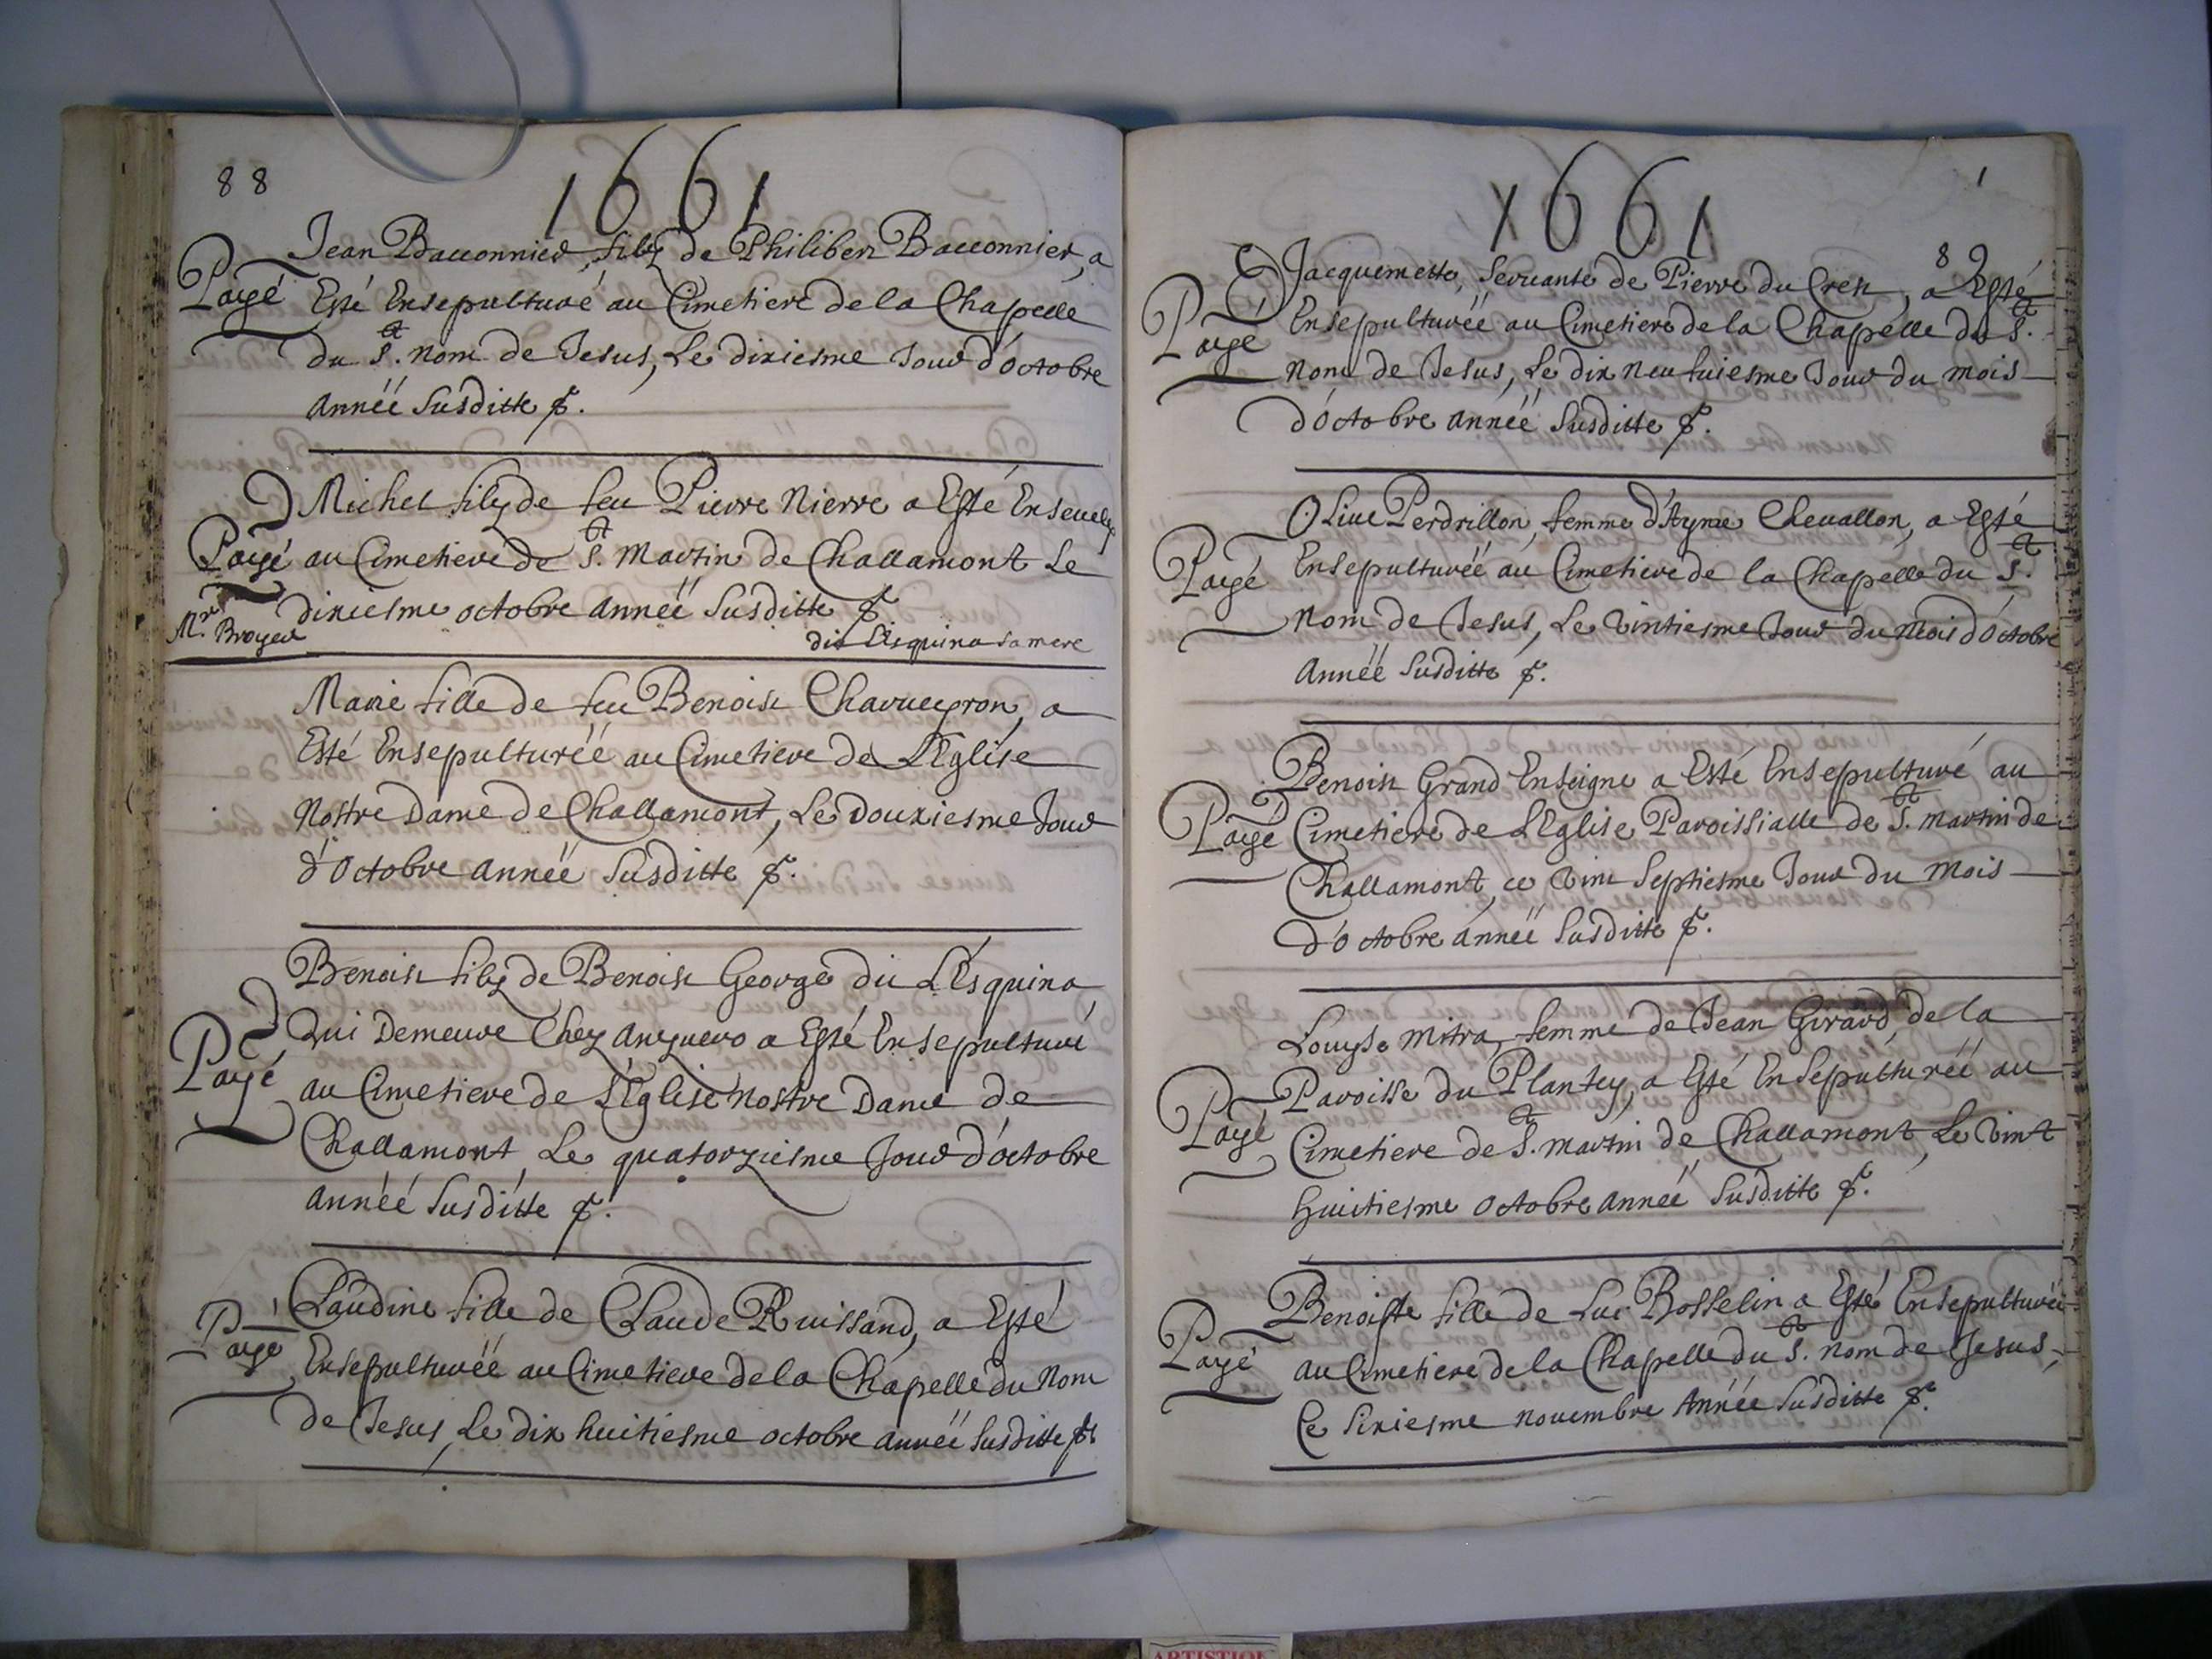 88
1661
Jean Baconnier, filz de Philibert Baconnier, a
Payé
Esté Ensepulturé au Cimetiere de la Chapelle
du St. nom de Jesus, Le dixiesme Jour d'octobre
Annéë Susditte
Michel filz de feu Pierre Nierre a Esté Ensevely
Payé
au Cimetiere de St. Martin de Challamont Le
dixiesme octobre Annéë Susditte
Mr. Broyer
dit Lesquina sa mere
Marie fille de feu Benoist Charveyron, a
Esté Ensepulturéë au Cimetiere de L'Eglise
Nostre Dame de Challamont, Le douxiesme Jour
d'Octobre Annéë Susditte
Benoist filz de Benoist George dit L'Esquina
Qui Demeure Chez a Esté Ensepulturé
Payé
au Cimetiere de L'Eglise Nostre Dame de
Challamont Le quatorziesme Jour d'octobre
Annéé Susditte
Claudine fille de Claude Ruissand, a Esté
Payé
Ensepulturéë au Cimetiere de la Chapelle du Nom
de Jesus, Le dix huitiesme octobre Annéë Susditte
1
1661
89
Jacquemette, Servante de Pierre du Crest, a Esté
Payé
Ensepulturéë au Cimetiere de la Chapelle du St.
Nom de Jesus, Le dix neufuiesme Jour du mois
d'octobre Annéë Susditte
Olive Perdrillon, femme d'Ayme Chevallon, a Esté
Payé
Ensepulturéë au Cimetiere de la Chapelle du St.
Nom de Jesus, Le Vintiesme Jour du Mois d'Octobre
Annéë Susditte
Benoist Grand Enseigne a Esté Ensepulturé au
Payé
Cimetiere de L'Eglise Paroissialle de St. Martin de
Challamont, ce Vint Septiesme Jour du Mois
d'octobre Annéë Susditte
Louyse Mitra, femme de Jean Girard, de la
Paroisse du Plantey, a Esté Ensepulturéë au
Payé
Cimetiere de St. Martin de Challamont, Le Vint
Huitiesme Octobre Annéë Susditte
Benoiste fille de Luc Bosselin a Esté Ensepulturéë
Payé
Au Cimetiere de la Chapelle du St. Nom de Jesus,
Ce Sixiesme Novembre Annéë Susditte
ARTISTION